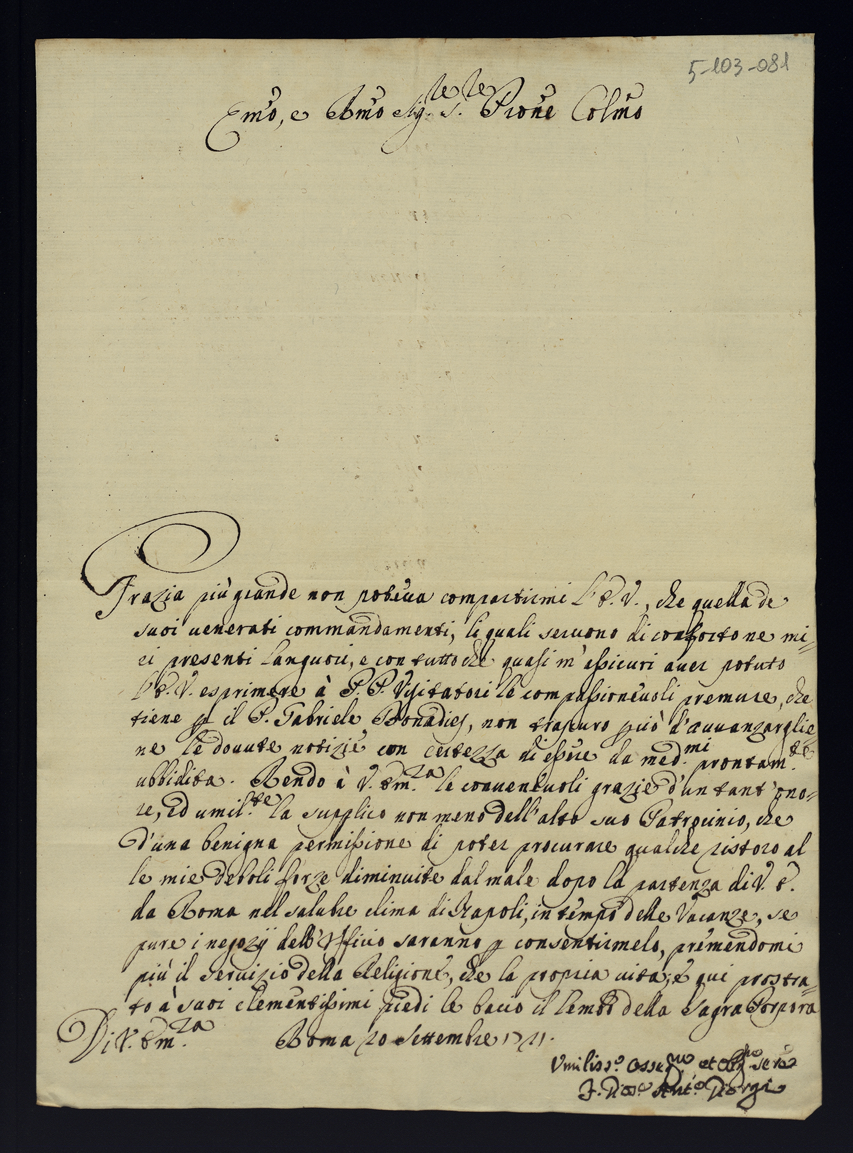 5-103-081
Emo, e Rmo Sig.re S.re Prone Colmo
Grazia più grande non poteva compartirmi l'E.V., che quella de
suoi venerati commandamenti, li quali servono di conforto ne mi=
ei presenti languori, e con tutto che quasi m'assicuri aver potuto
l'E.V. esprimere à P.P. Visitatori le compassionevoli premure, che
tiene p il P. Gabriele Bonadies, non trascuro però d'avvanzarglie
ne le dovute notizie con certezza di essere da med.mi prontam.te
ubbidita. Rendo à V. Em.za le convenevoli grazie d'un tant'ono=
re, ed umil.te la supplico non meno dell'alto suo Patrocinio, che
d'una benigna permissione di poter procurare qualche ristoro al
le mie deboli forze diminuite dal male dopo la partenza di V.E.
da Roma nel salubre clima di Napoli, in tempo delle Vacanze, se
pure i negozij dell'Ufficio saranno p consentirmelo, premendomi
più il servizio della Religione, che la propria vita; e qui prostra=
to à suoi clementissimi piedi le bacio il lembo della Sagra Porpora
Di V. Em.za Roma 20 Settembre 1721.
Umiliss.o Osse.mo et Obl.mo Ser.e
F. Ant.o Giorgi